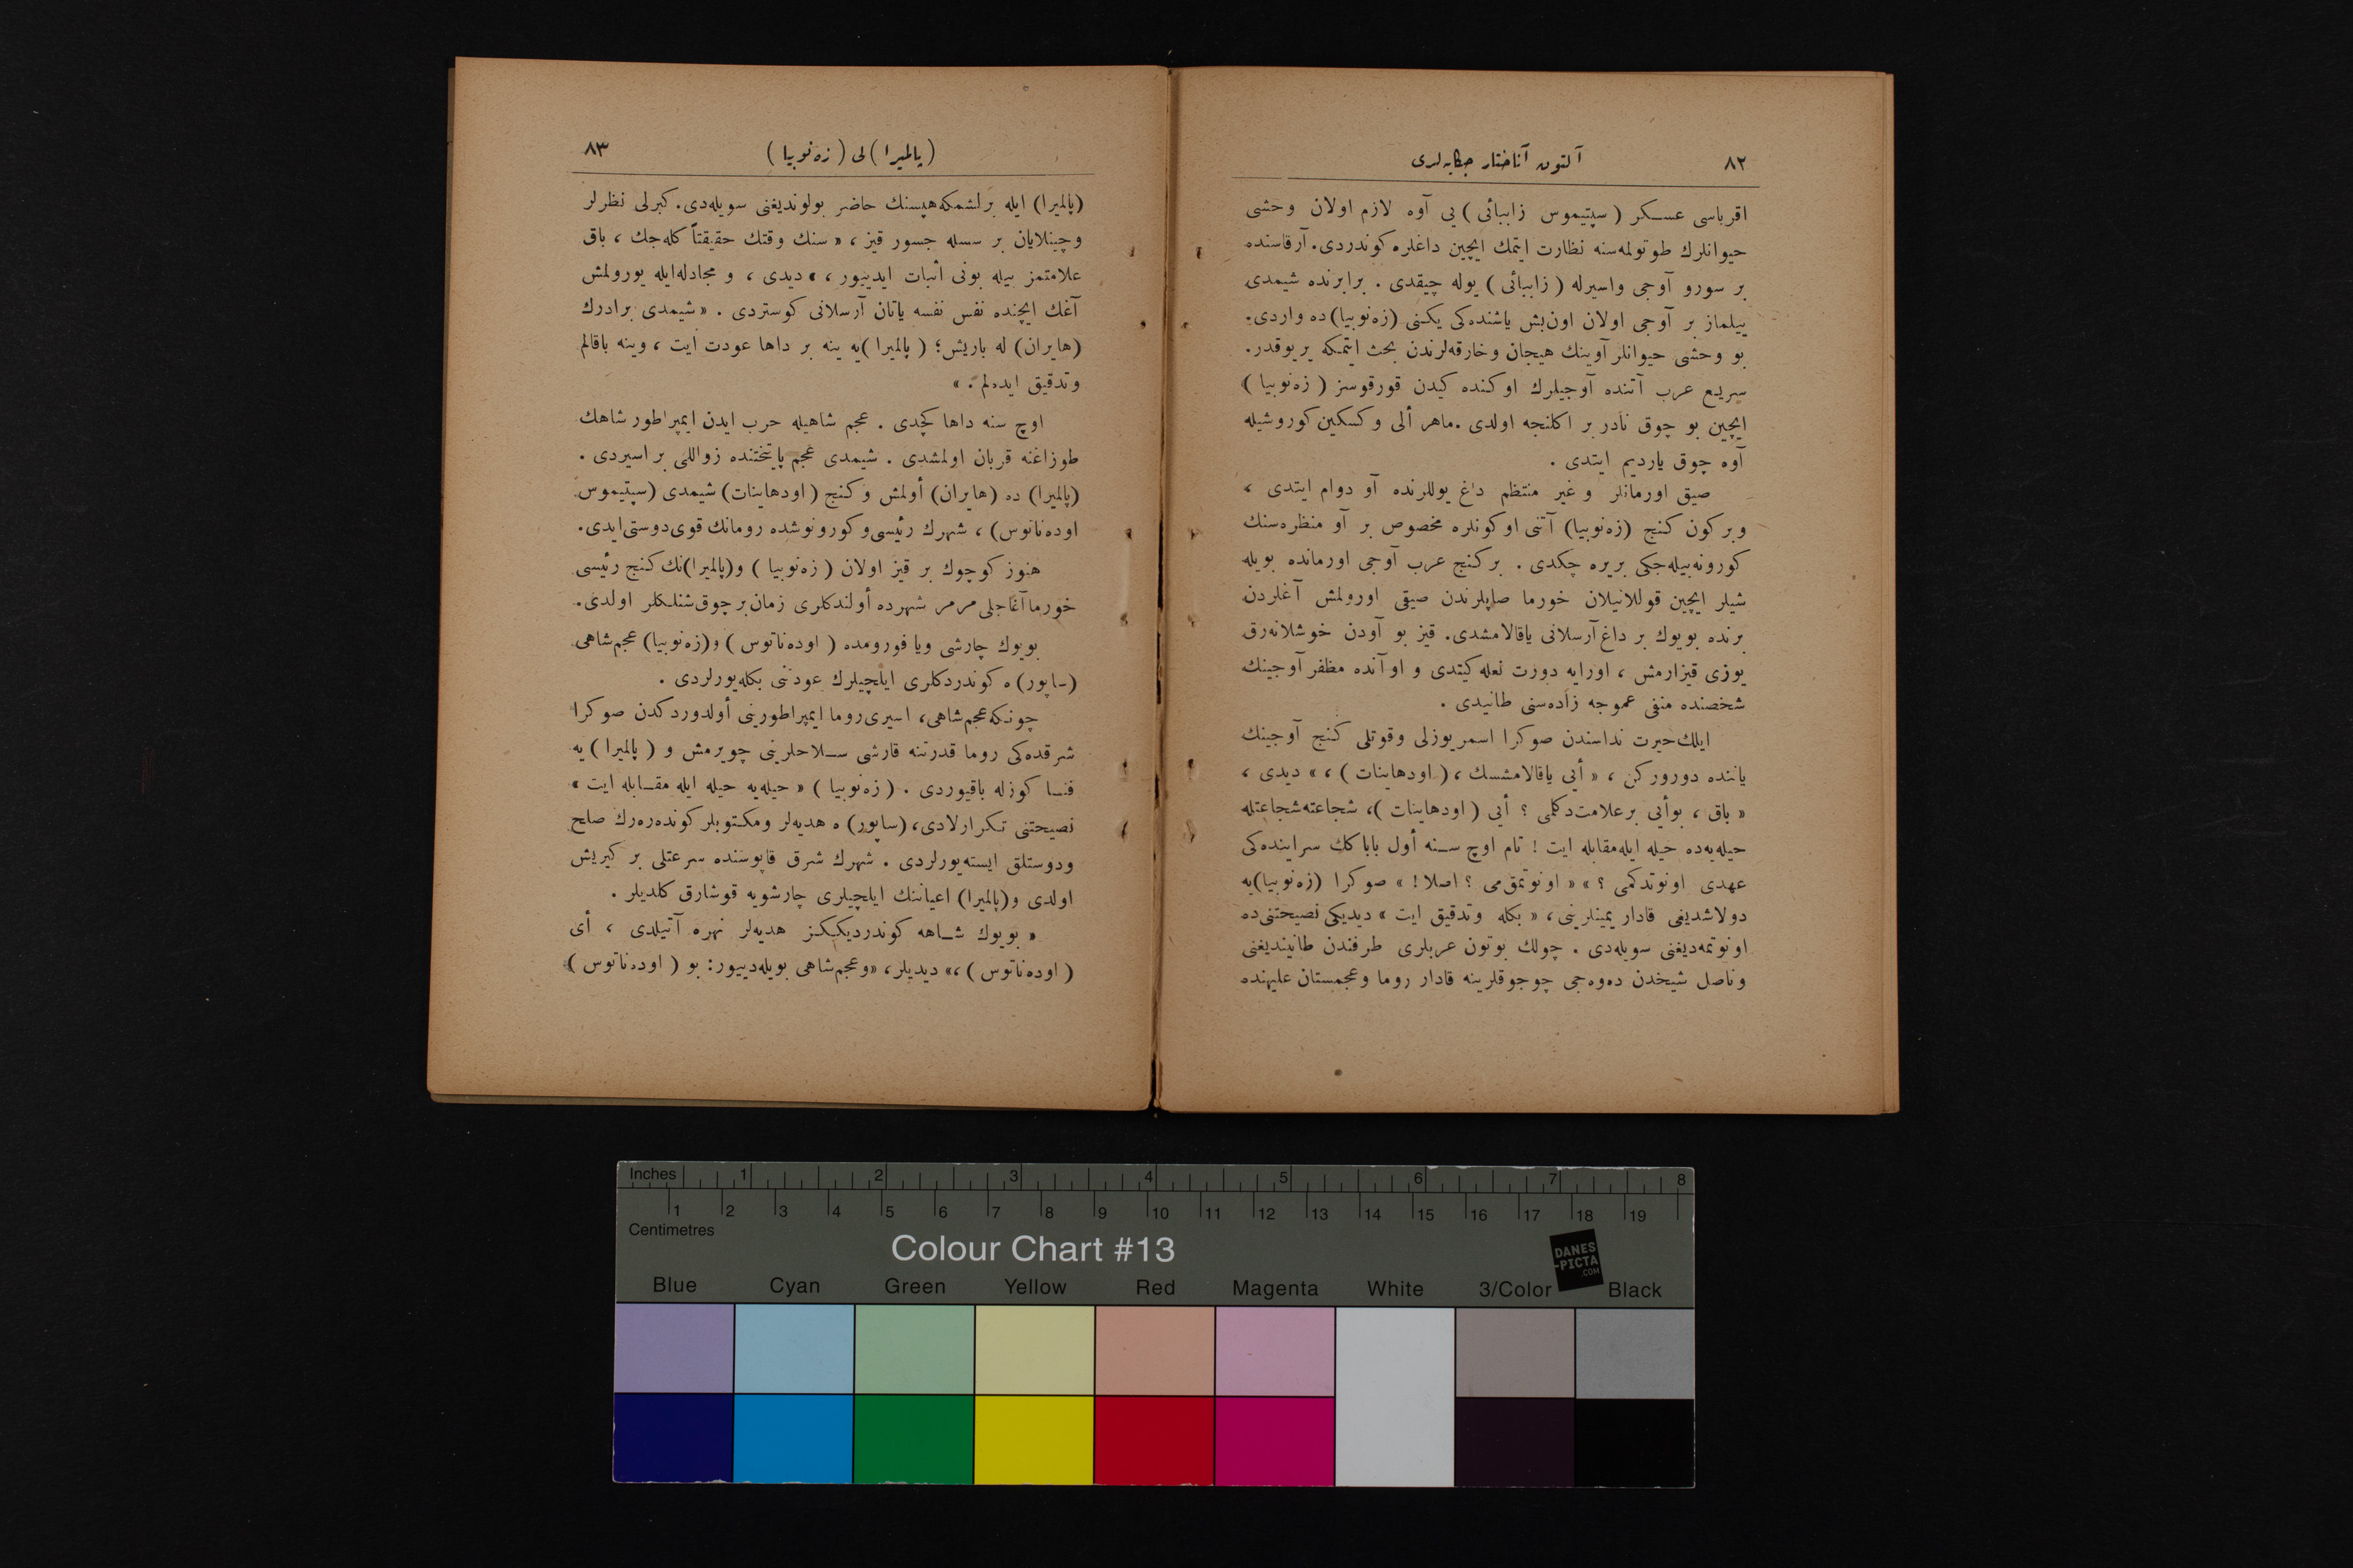 ٨٢ آلتون آناختار حکایه‌لری
اقرباسی عسکر ( سپتیموس زاببائی ) یی آوه لازم اولان وحشی
حیوانلرك طوتولمه‌سنه نظارت ایتمك ایچین داغلره کوندردی. آرقاسنده
بر سورو آوجی واسیرله ( زاببائی ) یوله چیقدی . برابرنده شیمدی
ییلماز بر آوجی اولان اون‌بش یاشنده‌کی یکنی (زه‌نوبیا) ده واردی.
بو وحشی حیوانلر آوینك هیجان وخارقه‌لرندن بحث ایتمکه یر یوقدر.
سریع عرب آتنده آوجیلرك اوکنده کیدن قورقوسز ( زه‌نوبیا )
ایچین بو چوق نادر بر اکلنجه اولدی .ماهر ألی وکسکین کوروشیله
آوه چوق یاردیم ایتدی .
صیق اورمانلر و غیر منتظم داغ یوللرنده آو دوام ایتدی ،
وبر کون کنج (زه‌نوبیا) آتنی اوکونلره مخصوص بر آو منظره‌سنك
کورونه‌بیله‌جکی بریره چکدی . بر کنج عرب آوجی اورمانده بویله
شیلر ایچین قوللانیلان خورما صاپلرندن صیقی اورولمش آغلردن
برنده بویوك بر داغ آرسلانی یاقالامشدی. قیز بو آودن خوشلانه‌رق
یوزی قیزارمش ، اورایه دورت نعله کیتدی و اوآنده مظفر آوجینك
شخصنده منفی عموجه زاده‌سنی طانیدی .
ایلك حیرت نداسندن صوکرا اسمر یوزلی وقوتلی کنج آوجینك
یاننده دورورکن ، « أیی یاقالامشسك ، ( اودهاینات ) ، » دیدی ،
« باق ، بوأیی بر علامت دکلمی ؟ أیی ( اودهاینات )، شجاعته شجاعتله
حیله‌یه‌ده حیله ایله مقابله ایت ! تام اوچ سنه أول باباکك سراینده‌کی
عهدی اونوتدکمی ؟ » « اونوتمق می ؟ اصلا ! » صوکرا (زه‌نوبیا)یه
دولاشدیغی قادار یمینلرینی ، « بکله وتدقیق ایت » دیدیکی نصیحتنی‌ده
اونوتمه‌دیغنی سویله‌دی . چولك بوتون عربلری طرفندن طانیندیغنی
وناصل شیخدن ده‌وه‌جی چوجوقلرینه قادار روما وعجمستان علیهنده
( پالمیرا ) لی ( زه‌نوبیا ) ٨٣
(پالمیرا) ایله برلشمکه هپسنك حاضر بولوندیغنی سویله‌دی. کبرلی نظرلر
وچینلایان بر سسله جسور قیز ، « سنك وقتك حقیقتاً کله‌جك ، باق
علامتمز بیله بونی اثبات ایدییور ، » دیدی ، و مجادله ایله یورولمش
آغك ایچنده نفس نفسه یاتان آرسلانی کوستردی . « شیمدی برادرك
(هایران) له باریش؛ ( پالمیرا )یه ینه بر داها عودت ایت ، وینه باقالم
وتدقیق ایده‌لم . »
اوچ سنه داها کچدی . عجم شاهیله حرب ایدن ایمپراطور شاهك
طوزاغنه قربان اولمشدی . شیمدی عجم پایتختنده زواللی بر اسیردی .
(پالمیرا) ده (هایران) أولمش وکنج (اودهاینات) شیمدی (سپتیموس
اوده‌ناتوس) ، شهرك رئیسی وکورونوشده رومانك قوی دوستی ایدی.
هنوز کوچوك بر قیز اولان ( زه‌نوبیا ) و(پالمیرا)نك کنج رئیسی
خورما آغاجلی مرمر شهرده أولندکلری زمان بر چوق شنلکلر اولدی.
بویوك چارشی ویا فورومده ( اوده‌ناتوس ) و(زه‌نوبیا) عجم شاهی
(ساپور) ه کوندردکلری ایلچیلرك عودتنی بکله‌یورلردی .
چونکه عجم شاهی، اسیری روما ایمپراطورینی أولدوردکدن صوکرا
شرقده‌کی روما قدرتنه قارشی سلاحلرینی چویرمش و ( پالمیرا ) یه
فنا کوزله باقیوردی . ( زه‌نوبیا ) « حیله‌یه حیله ایله مقابله ایت »
نصیحتنی تکرارلادی، (ساپور) ه هدیه‌لر ومکتوبلر کونده‌ره‌رك صلح
ودوستلق ایسته‌یورلردی . شهرك شرق قاپوسنده سرعتلی بر کیریش
اولدی و(پالمیرا) اعیاننك ایلچیلری چارشویه قوشارق کلدیلر .
« بویوك شاهه کوندردیککز هدیه‌لر نهره آتیلدی ، أی
( اوده‌ناتوس ) ،» دیدیلر، «وعجم شاهی بویله دییور: بو ( اوده‌ناتوس )
Inches 1 2 3 4 5 6 7 8
1 2 3 4 5 6 7 8 9 10 11 12 13 14 15 16 17 18 19
Centimetres
Colour Chart #13
DANES
-PICTA
.COM
Blue Cyan Green Yellow Red Magenta White 3/Color Black